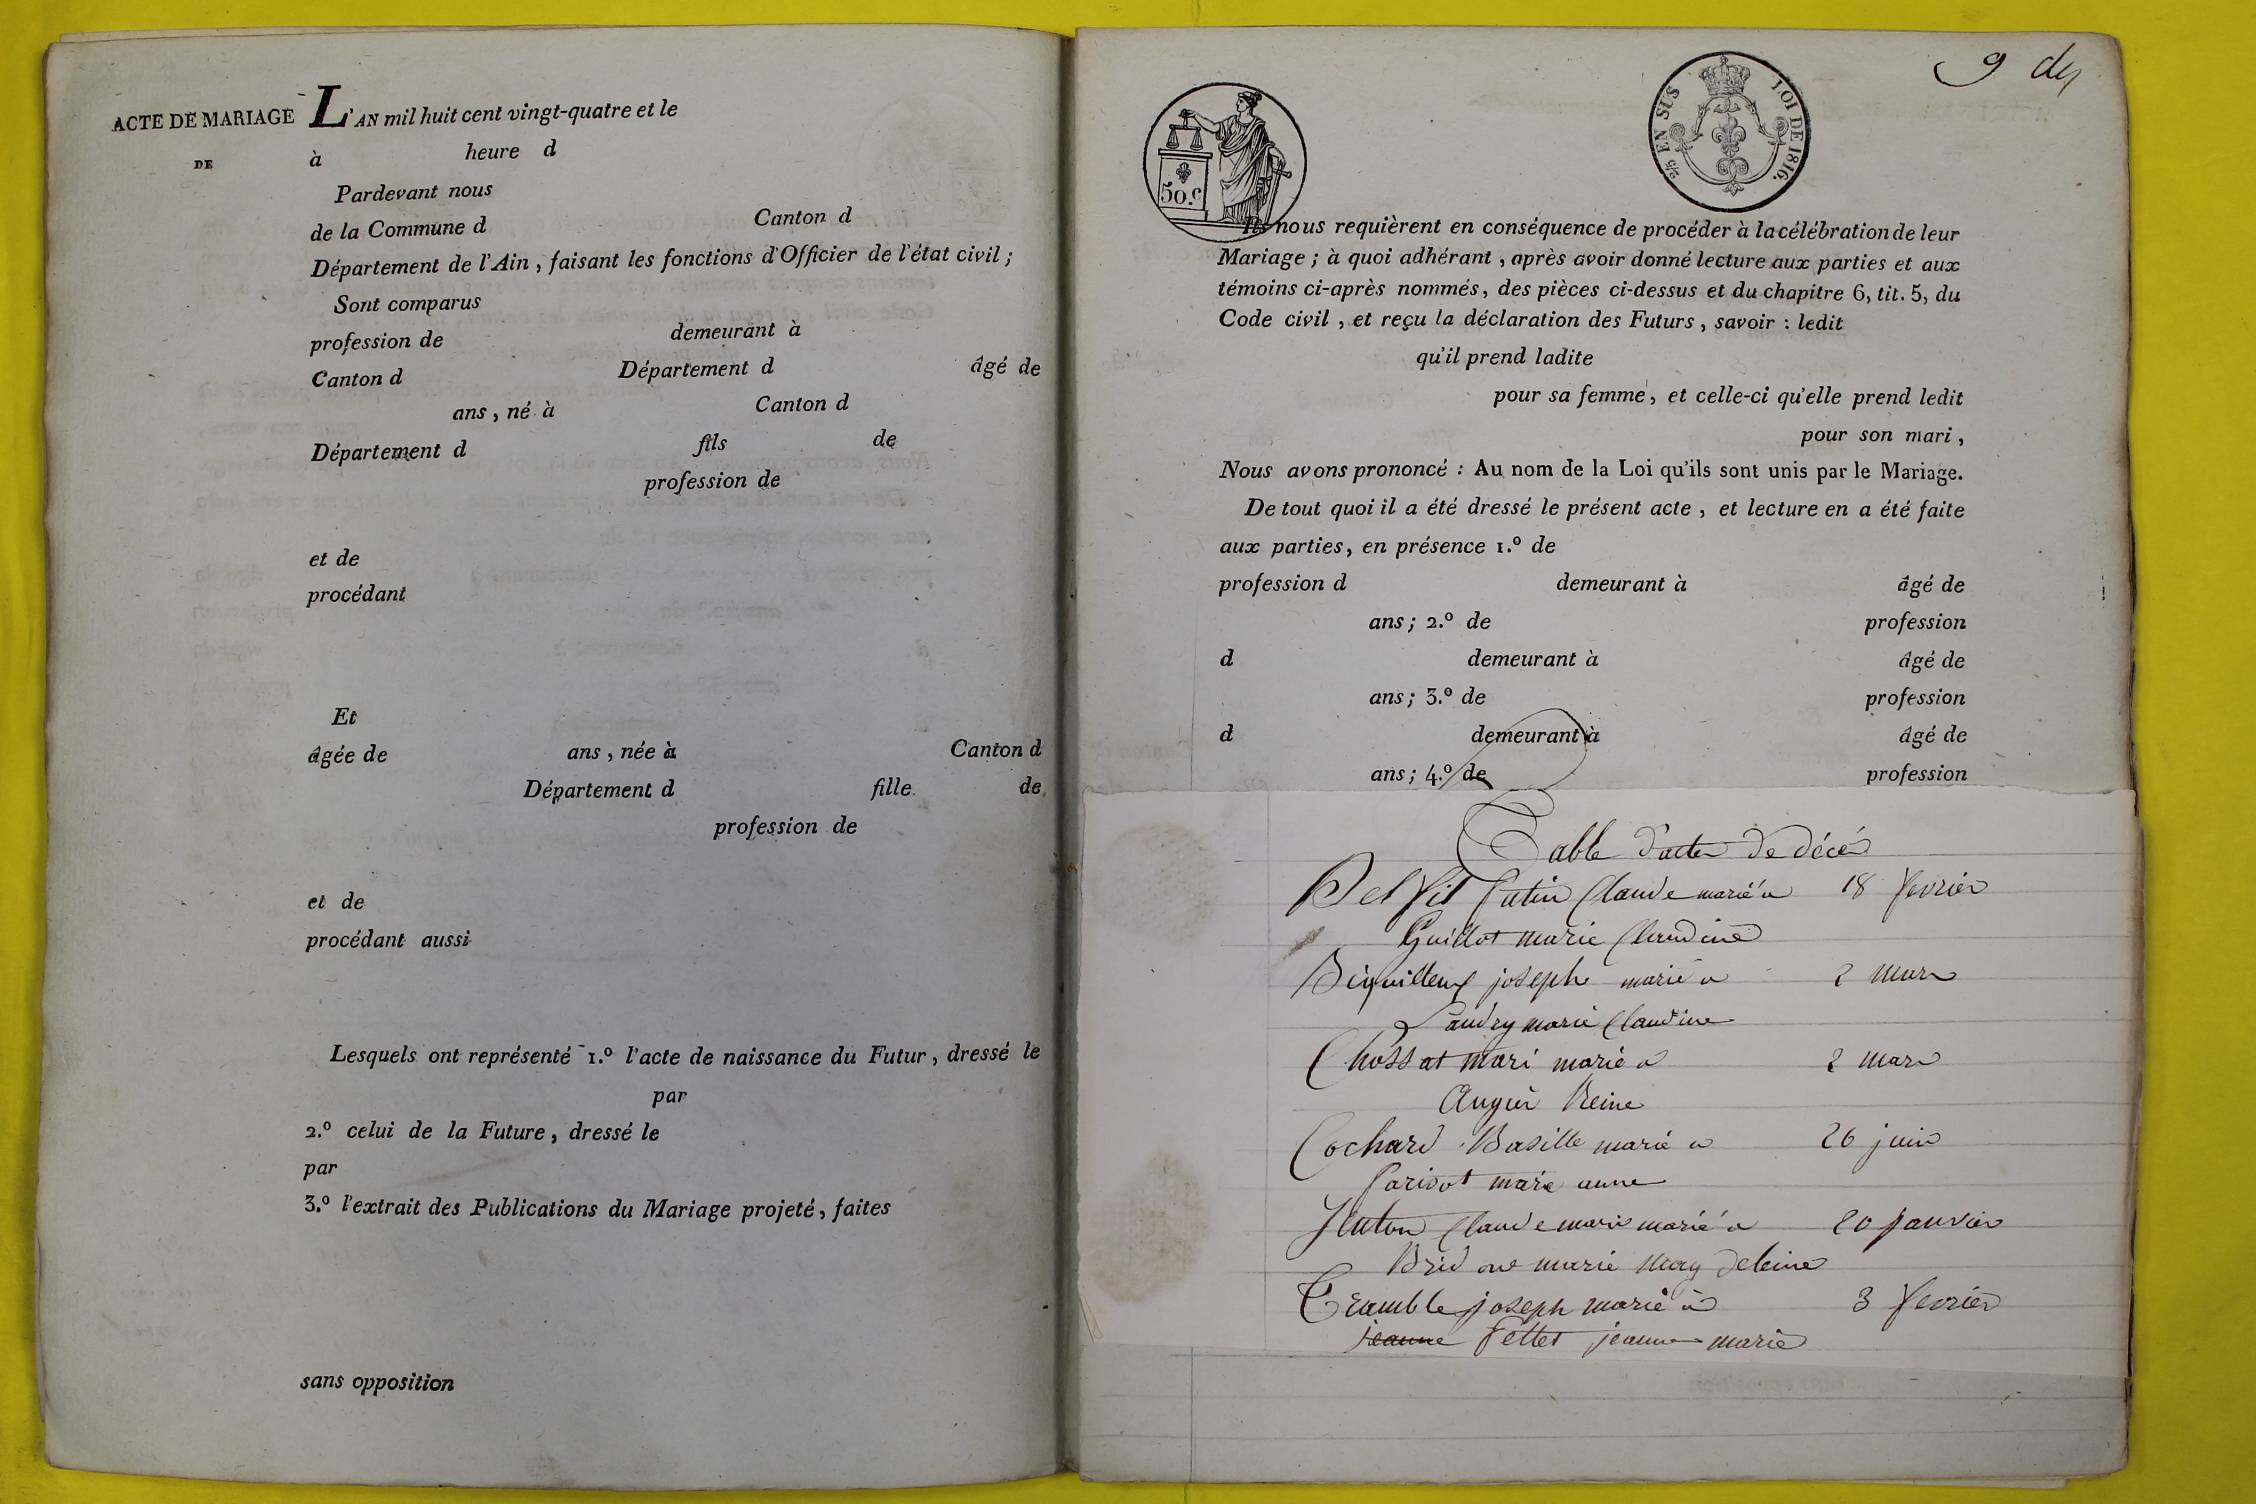 ACTE DE MARIAGE
DE
L'AN mil huit cent vingt-quatre et le
à heure d
Pardevant nous
de la Commune d Canton d
Département de l'Ain, faisant les fonctions d'Officier de l'état civil ;
Sont comparus
profession de demeurant à
Canton d Département d âgé de
ans, né à Canton d
Département d fils de
profession de
et de
procédant
Et
âgée de ans, née à Canton d
Département d fille de
profession de
et de
procédant aussi
Lesquels ont représenté 1.º l'acte de naissance du Futur, dressé le
par
2.º celui de la Future, dressé le
par
3.º l'extrait des Publications du Mariage projeté, faites
sans opposition
9
50.c
2/5 EN SUS LOI DE 1816.
Ils nous requièrent en conséquence de procéder à la célébration de leur
Mariage ; à quoi adhérant, après avoir donné lecture aux parties et aux
témoins ci-après nommés, des pièces ci-dessus et du chapitre 6, tit. 5, du
Code civil, et reçu la déclaration des Futurs, savoir : ledit
qu'il prend ladite
pour sa femme, et celle-ci qu'elle prend ledit
pour son mari,
Nous avons prononcé : Au nom de la Loi qu'ils sont unis par le Mariage.
De tout quoi il a été dressé le présent acte, et lecture en a été faite
aux parties, en présence 1.º de
profession d demeurant à âgé de
ans ; 2.º de profession
d demeurant à âgé de
ans ; 3.º de profession
d demeurant à âgé de
ans ; 4.º de profession
Table d'actes de décès
Claude marié a 18 fevrier
Guillot marie Claudine
joseph marié a 2 mars
Landry marie Claudine
Chossat mari marié a 2 mars
Augier Reine
Cochard Basille marié a 26 juin
Parisot marie anne
Claude marie marié a 20 janvier
marie magdeleine
Tramble joseph marié à 3 fevrier
jeanne Pettet jeanne marie